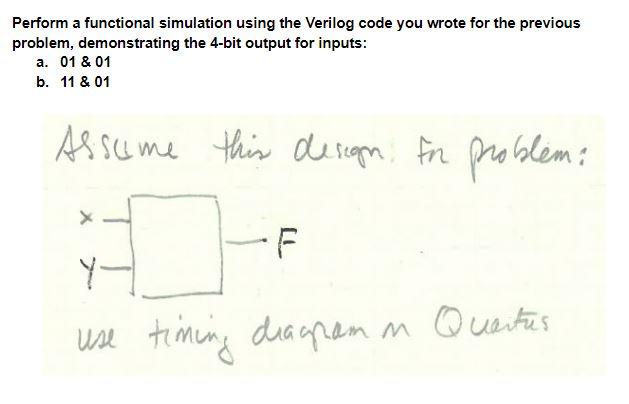 Perform a functional simulation using the Verilog code you wrote for the previous
problem, demonstrating the 4-bit output for inputs:
a. 01 & 01
b. 11 & 01
Assume this design for problem:
X
F
Y
use timing diagram in Quartus